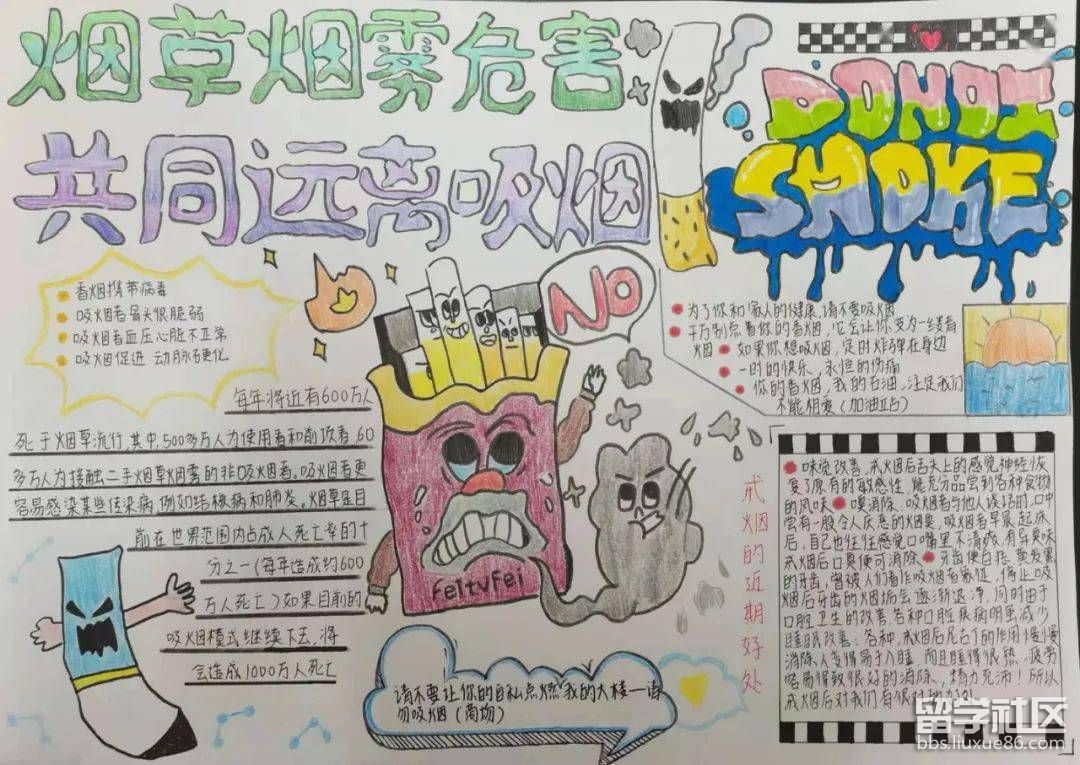 烟草烟雾危害
共同远离吸烟
DO NOT
SMOKE
NO
香烟携带病毒
吸烟者骨头很脆弱
吸烟者血压心脏不正常
吸烟促进 动脉老更化
每年将近有600万人
死于烟草流行,其中,500多万人为使用者和前 者 60
多万人为接触二手烟草烟雾的非吸烟者。吸烟者更
容易感染某些传染病,例如结核病和肺炎。烟草是目
前在世界范围内占成人死亡率的十
分之一(每年造成约600
万人死亡)如果目前的
吸烟模式继续下去,将
会造成1000万人死亡
为了你和家人的健康,请不要吸烟
千万别点着你的香烟,它会让你变为一缕青
烟 如果你想吸烟,定时炸弹在身边
一时的快乐、永恒的伤痛
你的香烟,我的石油,注定我们
不能相爱(加油站)
FeItvFei
请不要让你的自私点燃我的大楼一请
勿吸烟(商场)
戒烟的近期好处
味觉改善:戒烟后舌头上的感觉神经恢
复了原有的敏感性,能充分品尝到各种食物
的风味 嗅消除:吸烟者与他人谈话时,口中
尝有一股令人厌恶的烟臭,吸烟者早晨起床
后,自己也往往感觉口嘴里不清爽,有异臭味
戒烟后口臭便可消除 牙齿便白洁:要发黑
的牙齿,曾被人们看作吸烟者象征,停止吸
烟后牙齿的烟垢会逐渐退净,同时由于
口腔卫生的改善,各种口腔疾病明显减少
睡眠改善:各种,戒烟后尼古丁的作用慢慢
消除,人变得易于入睡,而且睡得很熟,疲劳
容易得到很好的消除,精力充沛!所以
戒烟后对我们有很
留学社区
bbs.liuxue86.com